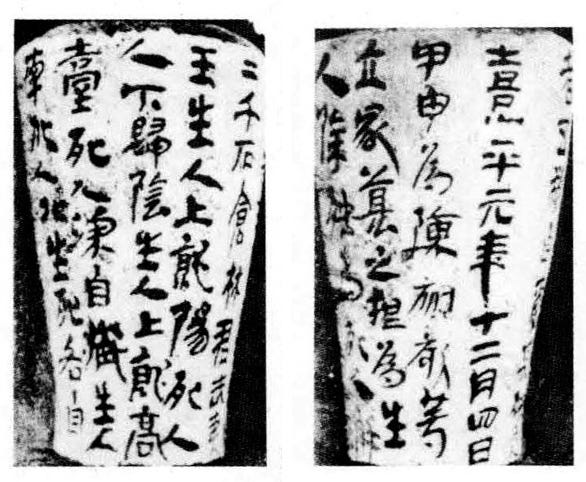 熹平元年十二月四日
甲申為陳叔敬等
立冢墓之根為生
人除殃為死人
二千石倉林君武夷
王生人上就陽死人
下歸陰生人上就高
臺死人深自藏生人
南死人北生死各自